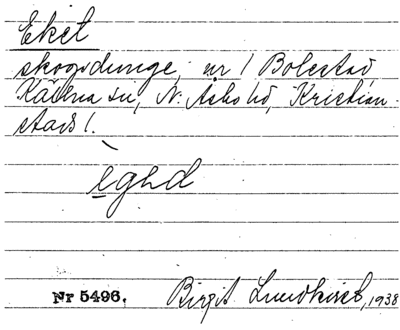 Eket
skogsdunge, nr 1 Bolestad,
Källna sn, N. Åsbo hd, Kristian-
stads l.
Nr 5496. Birgit Lundkvist, 1938